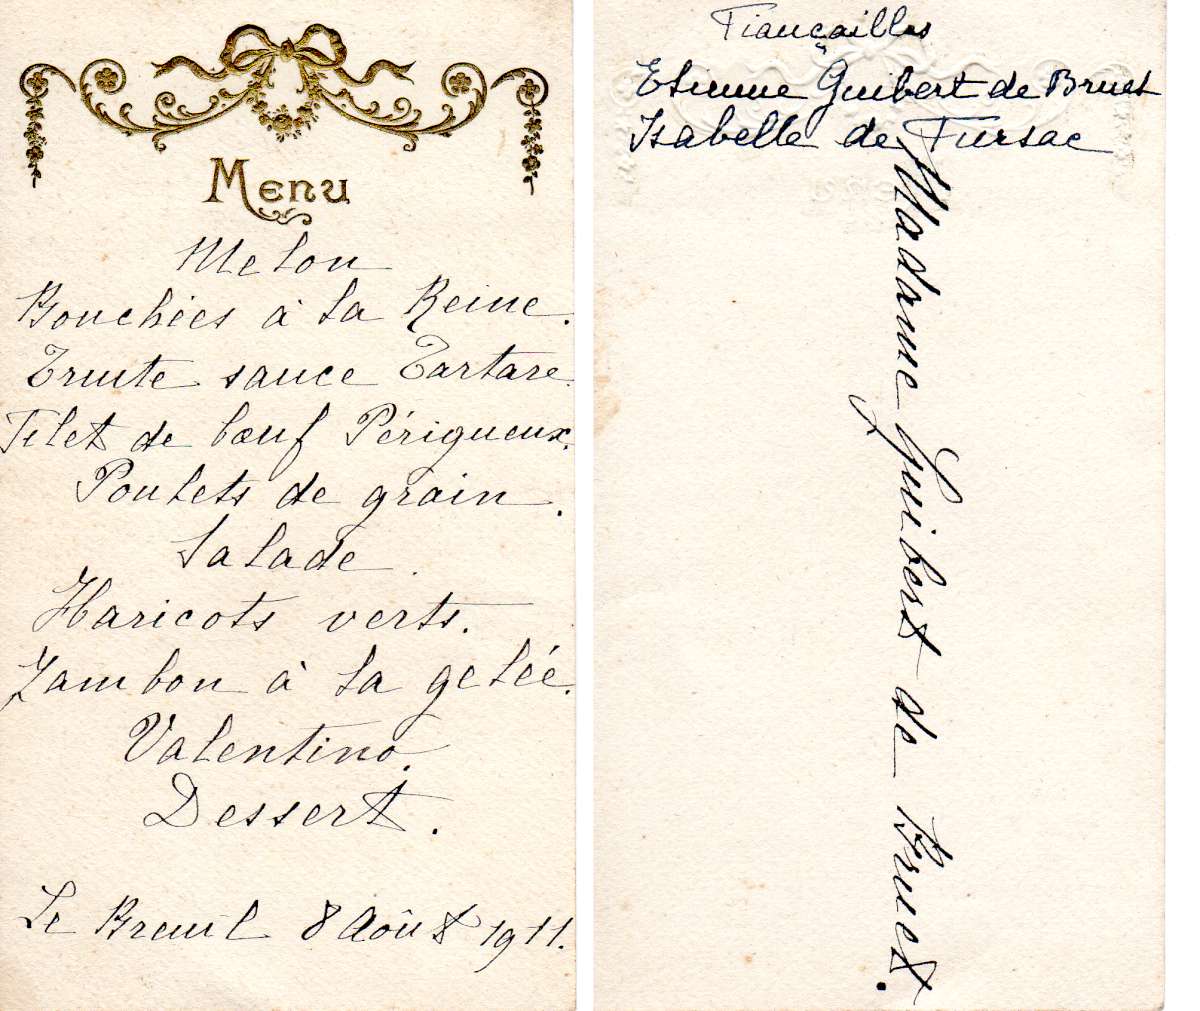 Menu
Melon
Bouchées à la Reine.
Truite sauce Tartare
Filet de bœuf Périgueux.
Poulets de grain.
Salade.
Haricots verts.
Jambon à la gelée.
Valentino.
Dessert.
Le Breuil 8 Août 1911.
Fiançailles
Etienne Guibert de Bruet
Isabelle de Fursac
Madame Guibert de Bruet.